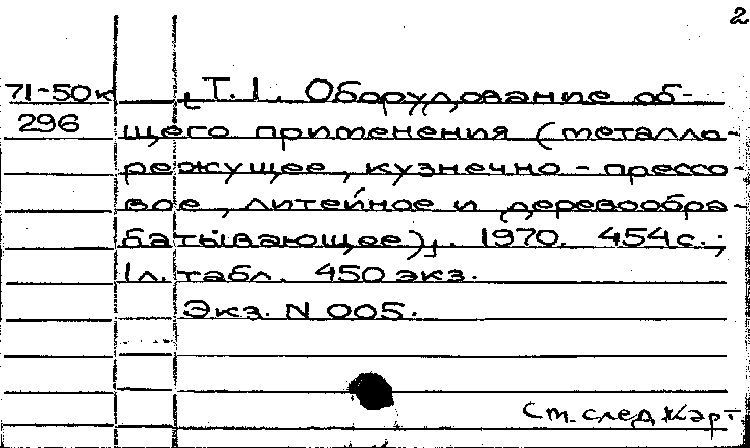 2
71-50к [Т. 1. Оборудование об-
296 щего применения (металло-
режущее, кузнечно-прессо-
вое, литейное и деревообра-
батывающее)]. 1970. 454 с.;
1 л. табл. 450 экз.
Экз. N 005.
Ст. след. карт.